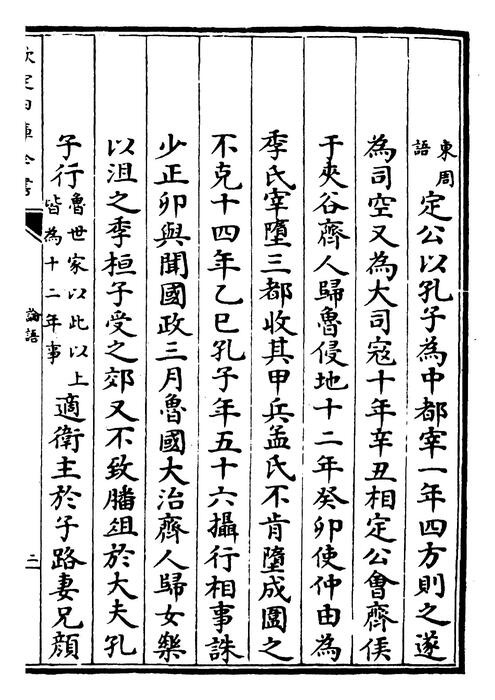 東周語定公以孔子為中都宰一年四方則之遂
為司空又為大司寇十年辛丑相定公會齊侯
于夾谷齊人歸魯侵地十二年癸卯使仲由為
季氏宰墮三都收其甲兵孟氏不肯墮成圍之
不克十四年乙巳孔子年五十六攝行相事誅
少正卯與聞國政三月魯國大治齊人歸女樂
以沮之季桓子受之郊又不致膰俎於大夫孔
子行魯世家以此以上皆為十二年事適衛主於子路妻兄顏
欽定四庫全書
論語
二